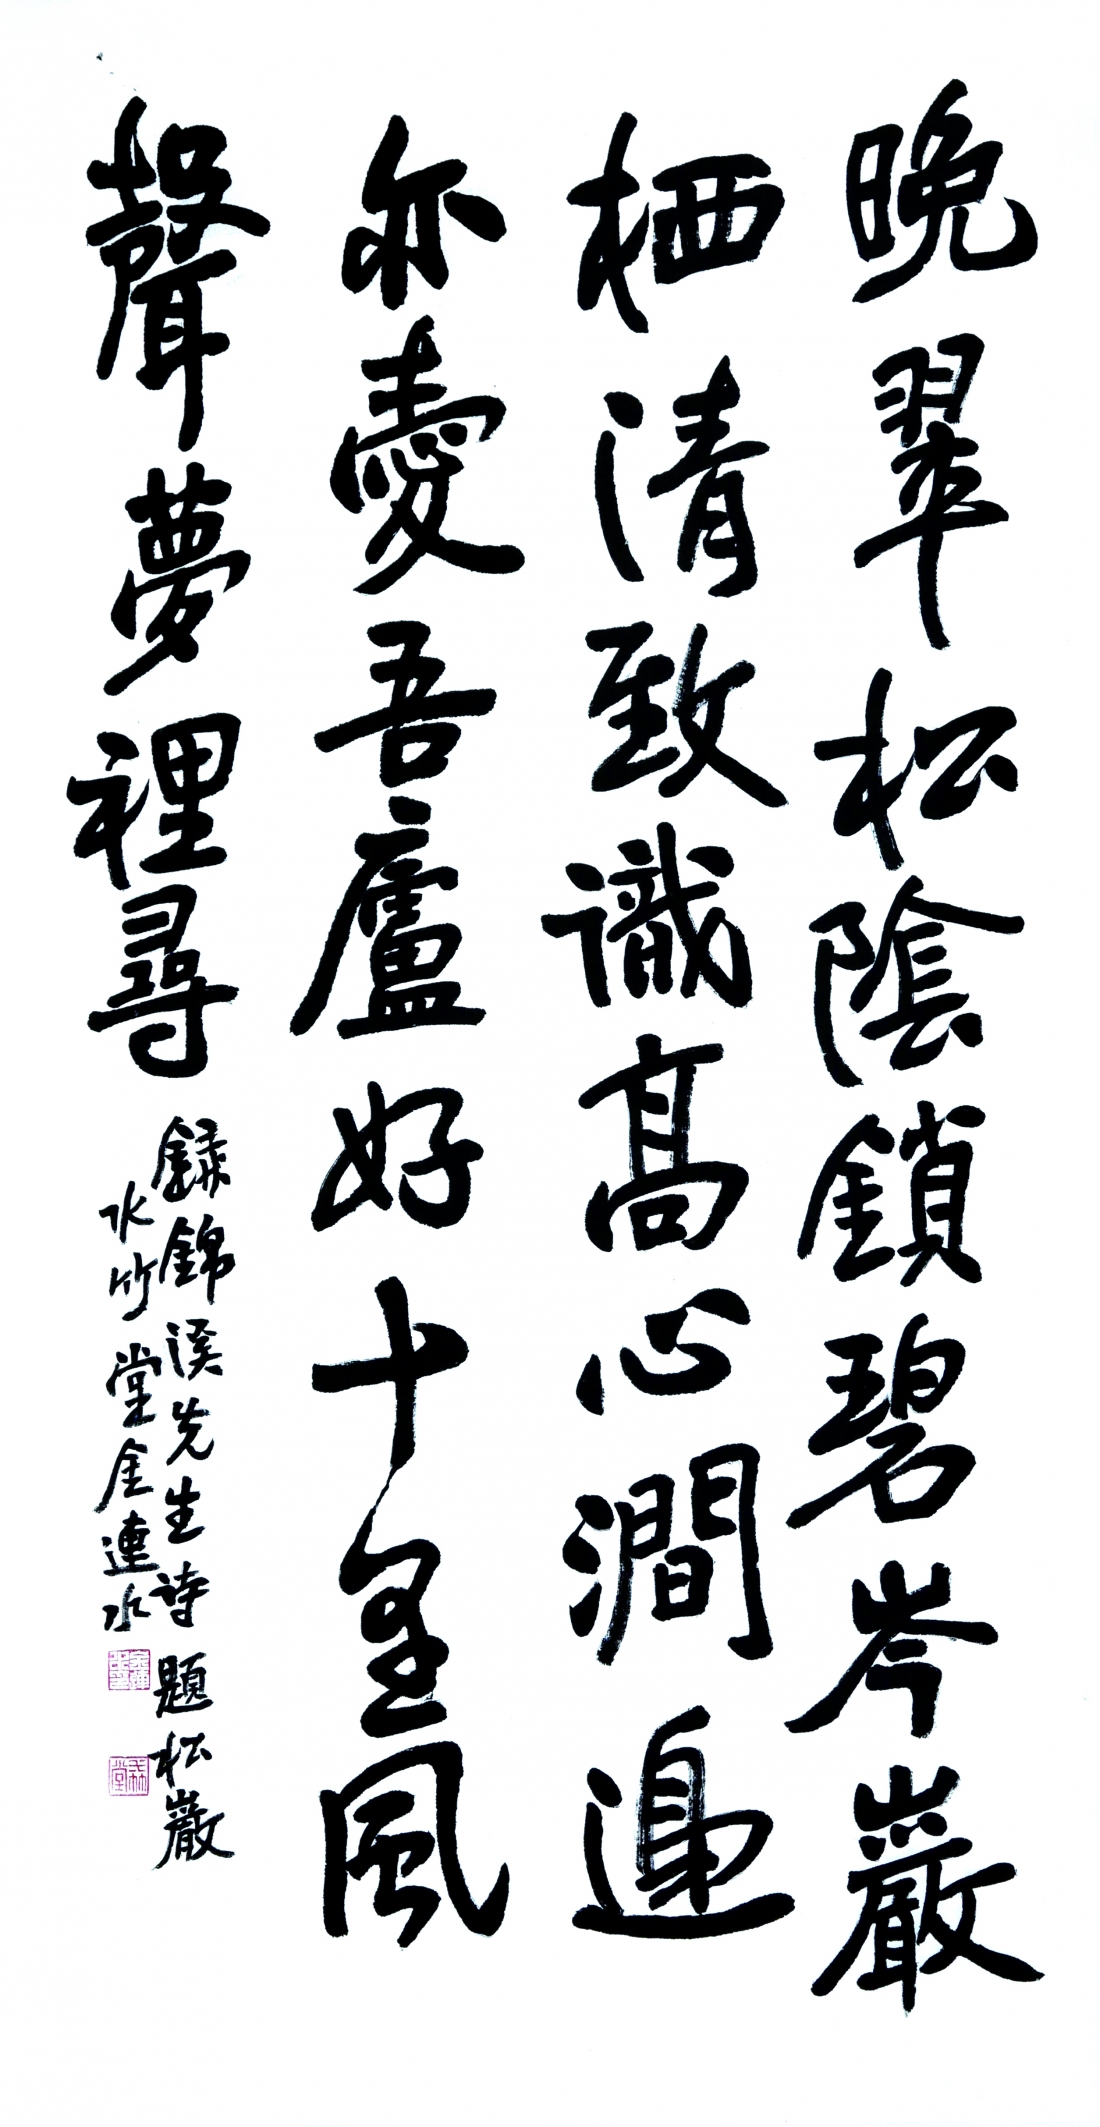 晩翠松陰鎖碧岑巖
栖清致識高心澗邊
亦愛吾廬好十里風
聲夢裡尋
録錦溪先生詩 題松巖
水竹堂金連水